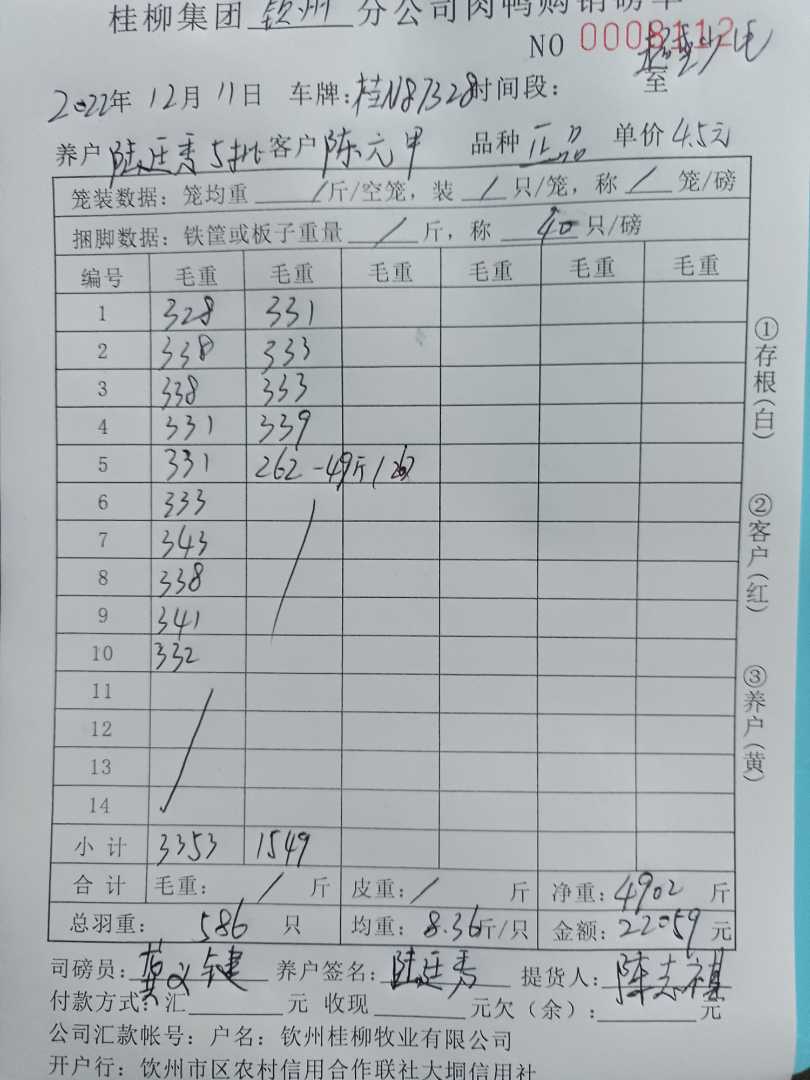 桂柳集团 钦州 分公司肉鸭购销磅单
NO 0008112
2022年 12月 11日 车牌:桂N87328 时间段: 至
养户 陆廷秀 5批 客户 陈元甲 品种 正品 单价 4.5元
笼装数据: 笼均重 / 斤/空笼, 装 / 只/笼, 称 / 笼/磅
捆脚数据: 铁筐或板子重量 / 斤, 称 40 只/磅
编号 毛重 毛重 毛重 毛重 毛重 毛重
1 328 331
2 338 333
3 338 333
4 331 339
5 331 262 -49斤/262
6 333
7 343
8 338
9 341
10 332
11
12
13
14
小计 3353 1549
合计 毛重: / 斤 皮重: / 斤 净重: 4902 斤
总羽重: 586 只 均重: 8.36斤/只 金额: 22059 元
司磅员: 养户签名: 陆廷秀 提货人: 陈志祺
付款方式: 汇 元 收现 元欠(余): 元
公司汇款帐号: 户名: 钦州桂柳牧业有限公司
开户行: 钦州市区农村信用合作联社大垌信用社
①存根(白)
②客户(红)
③养户(黄)